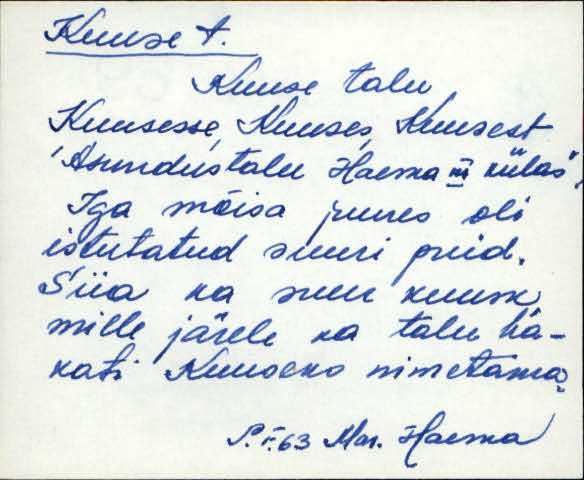 Kuuse t.
Kuuse talu
Kuusesse, Kuuses, Kuusest
"Asundustalu Haeska III külas".
Iga mõisa juures oli
istutatud suuri puid.
Siia ka suur kuusk
mille järele ka talu hä-
kati Kuuseks nimetama.
63 Mar. Haeska